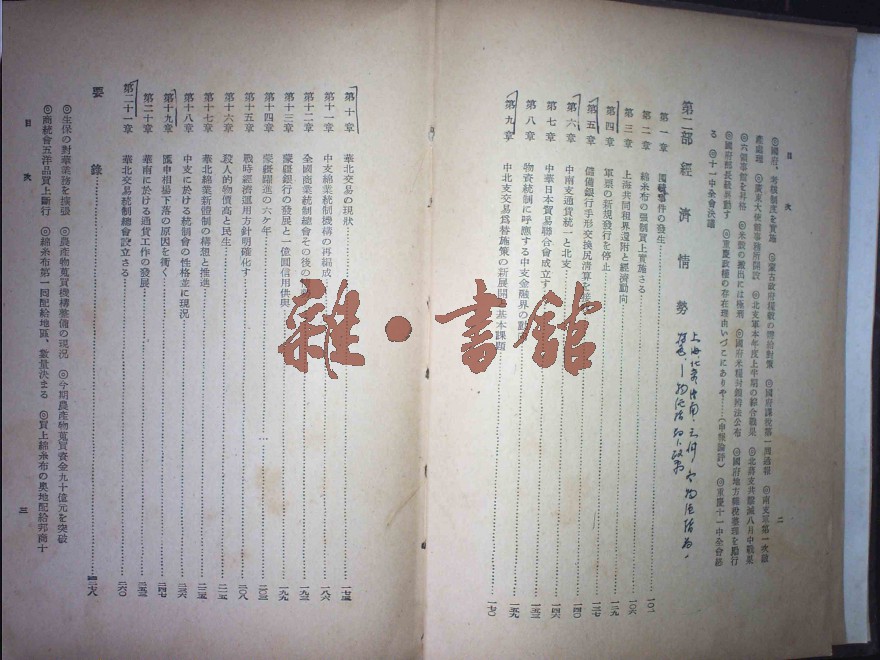 目次
二
◎國府、考核制度を實施
◎蒙古政府糧穀の增給對策
◎國府課稅第一周過報
◎南支軍第一次敵
產處理
◎廣東大使館事務所開設
◎北支軍本年度上半期の綜合戰果
◎北蔣支共匪滅八月中戰果
◎六領事館を昇格
◎米穀の搬出には極刑
◎國府米糧封鎖辨法公布
◎國府地方雜稅整理を勵行
◎國府部長級異動す
◎重慶政權の存在理由いづこにありや……(申報論評)
◎重慶十一中全會語
る
◎十一中全會決議
第二部 經濟情勢
第一章 事件の發生 一〇一
第二章 綿糸布の强制買上實施さる 一〇六
第三章 上海共同租界還附と經濟動向 一一九
第四章 軍票の新規發行を停止 一二七
第五章 儲備銀行手形交換尻清算を 一四〇
第六章 中南支通貨統一と北支 一四六
第七章 中華日本貿易聯合會成立す 一五三
第八章 物資統制に呼應する中支金融界の動 一五九
第九章 中北支交易爲替施策の新展開 基本課題 一七〇
雜·書館
第十章 華北交易の現狀 一七五
第十一章 中支綿業統制機構の再編成 一八六
第十二章 全國商業統制總會その後の 一九三
第十三章 蒙疆銀行の發展と一億圓信用供與 一九九
第十四章 蒙疆躍進の六ケ年 二〇三
第十五章 戰時經濟運用方針明確化す 二〇八
第十六章 殺人的物價高と民生 二一五
第十七章 華北綿業新體制の構想と推進 二二五
第十八章 中支に於ける統制會の性格並に現況 二三六
第十九章 匯申相場下落の原因を衝く 二四七
第二十章 華南に於ける通貨工作の發展 二五三
第二十一章 華北交易統制總會設立さる 二六〇
要錄 二六八
◎生保の對華業務を擴張
◎農產物蒐買機構整備の現況
◎今期農產物蒐買資金九十億元を突破
◎商統會五洋品買上斷行
◎綿糸布第一回配給地區、數量決まる
◎買上綿糸布の奧地配給邦商十
目次
三